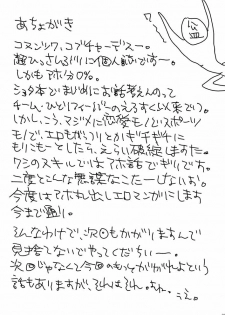 あちょがき
コスンツワ、コブチャーデスー。
超ひっさしぶりに個人誌ですー。
しかもアホ分0%。
ショタ本でまじめにお話考えんのって
チーム・ひとりフィーバーのえろすくい以来でう。
しかし、こう、マジメに恋愛モノでスポーツ
モノで、エロもがっつりとかギチギチに
もりこもーとしたら、えらい破綻しますた。
ワシのスキルではアホ話でギリです。
二度とこんな無謀なことたーしないお。
今度はアホたれ出しエロマンガにします
今まで通り。
そんなわけで、次回もかがりますんで
見捨てないでやってくだちぃー。
次回じゃなくて今回のもかがれよという
話もありますが、それはそれ。
うえ。